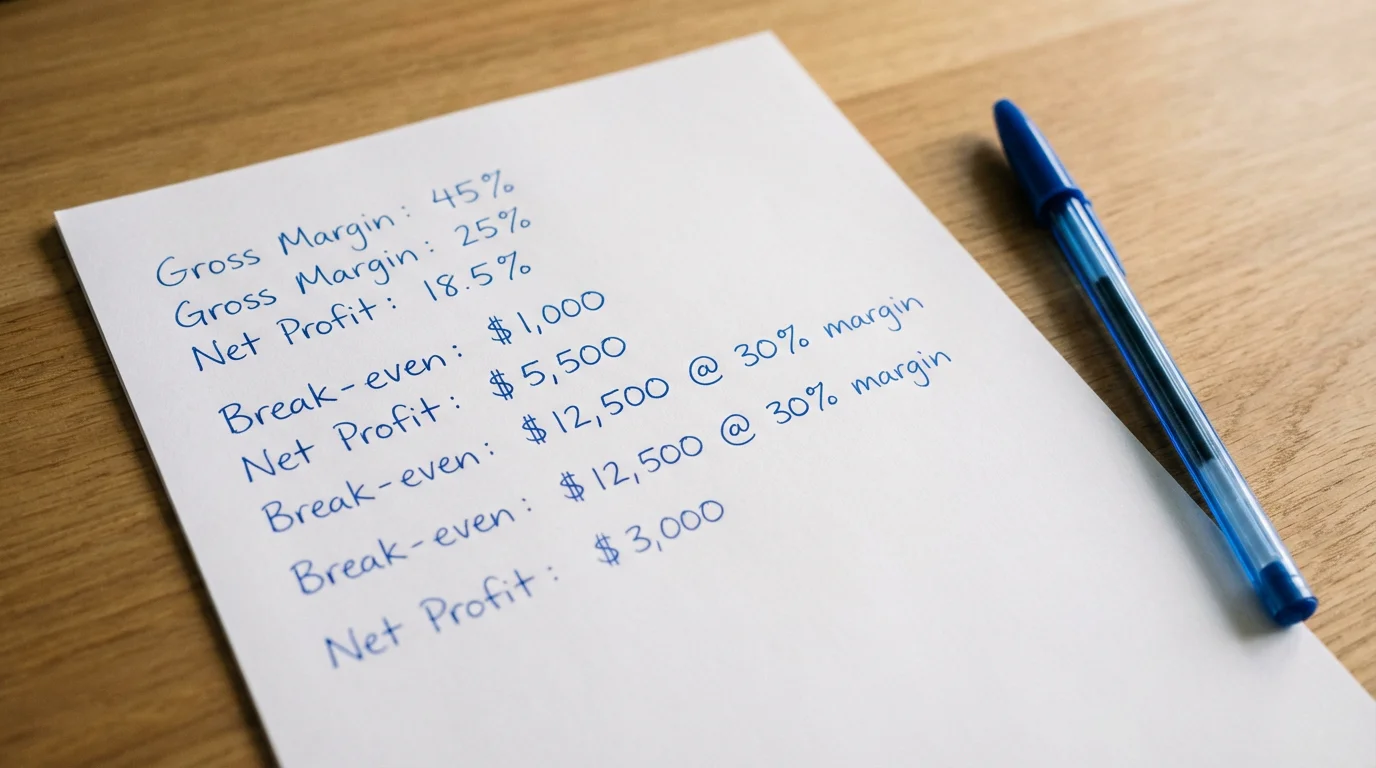 Gross Margin: 45%
Gross Margin: 25%
Net Profit: 18.5%
Break-even: $1,000
Net Profit: $5,500
Break-even: $12,500 @ 30% margin
Break-even: $12,500 @ 30% margin
Net Profit: $3,000